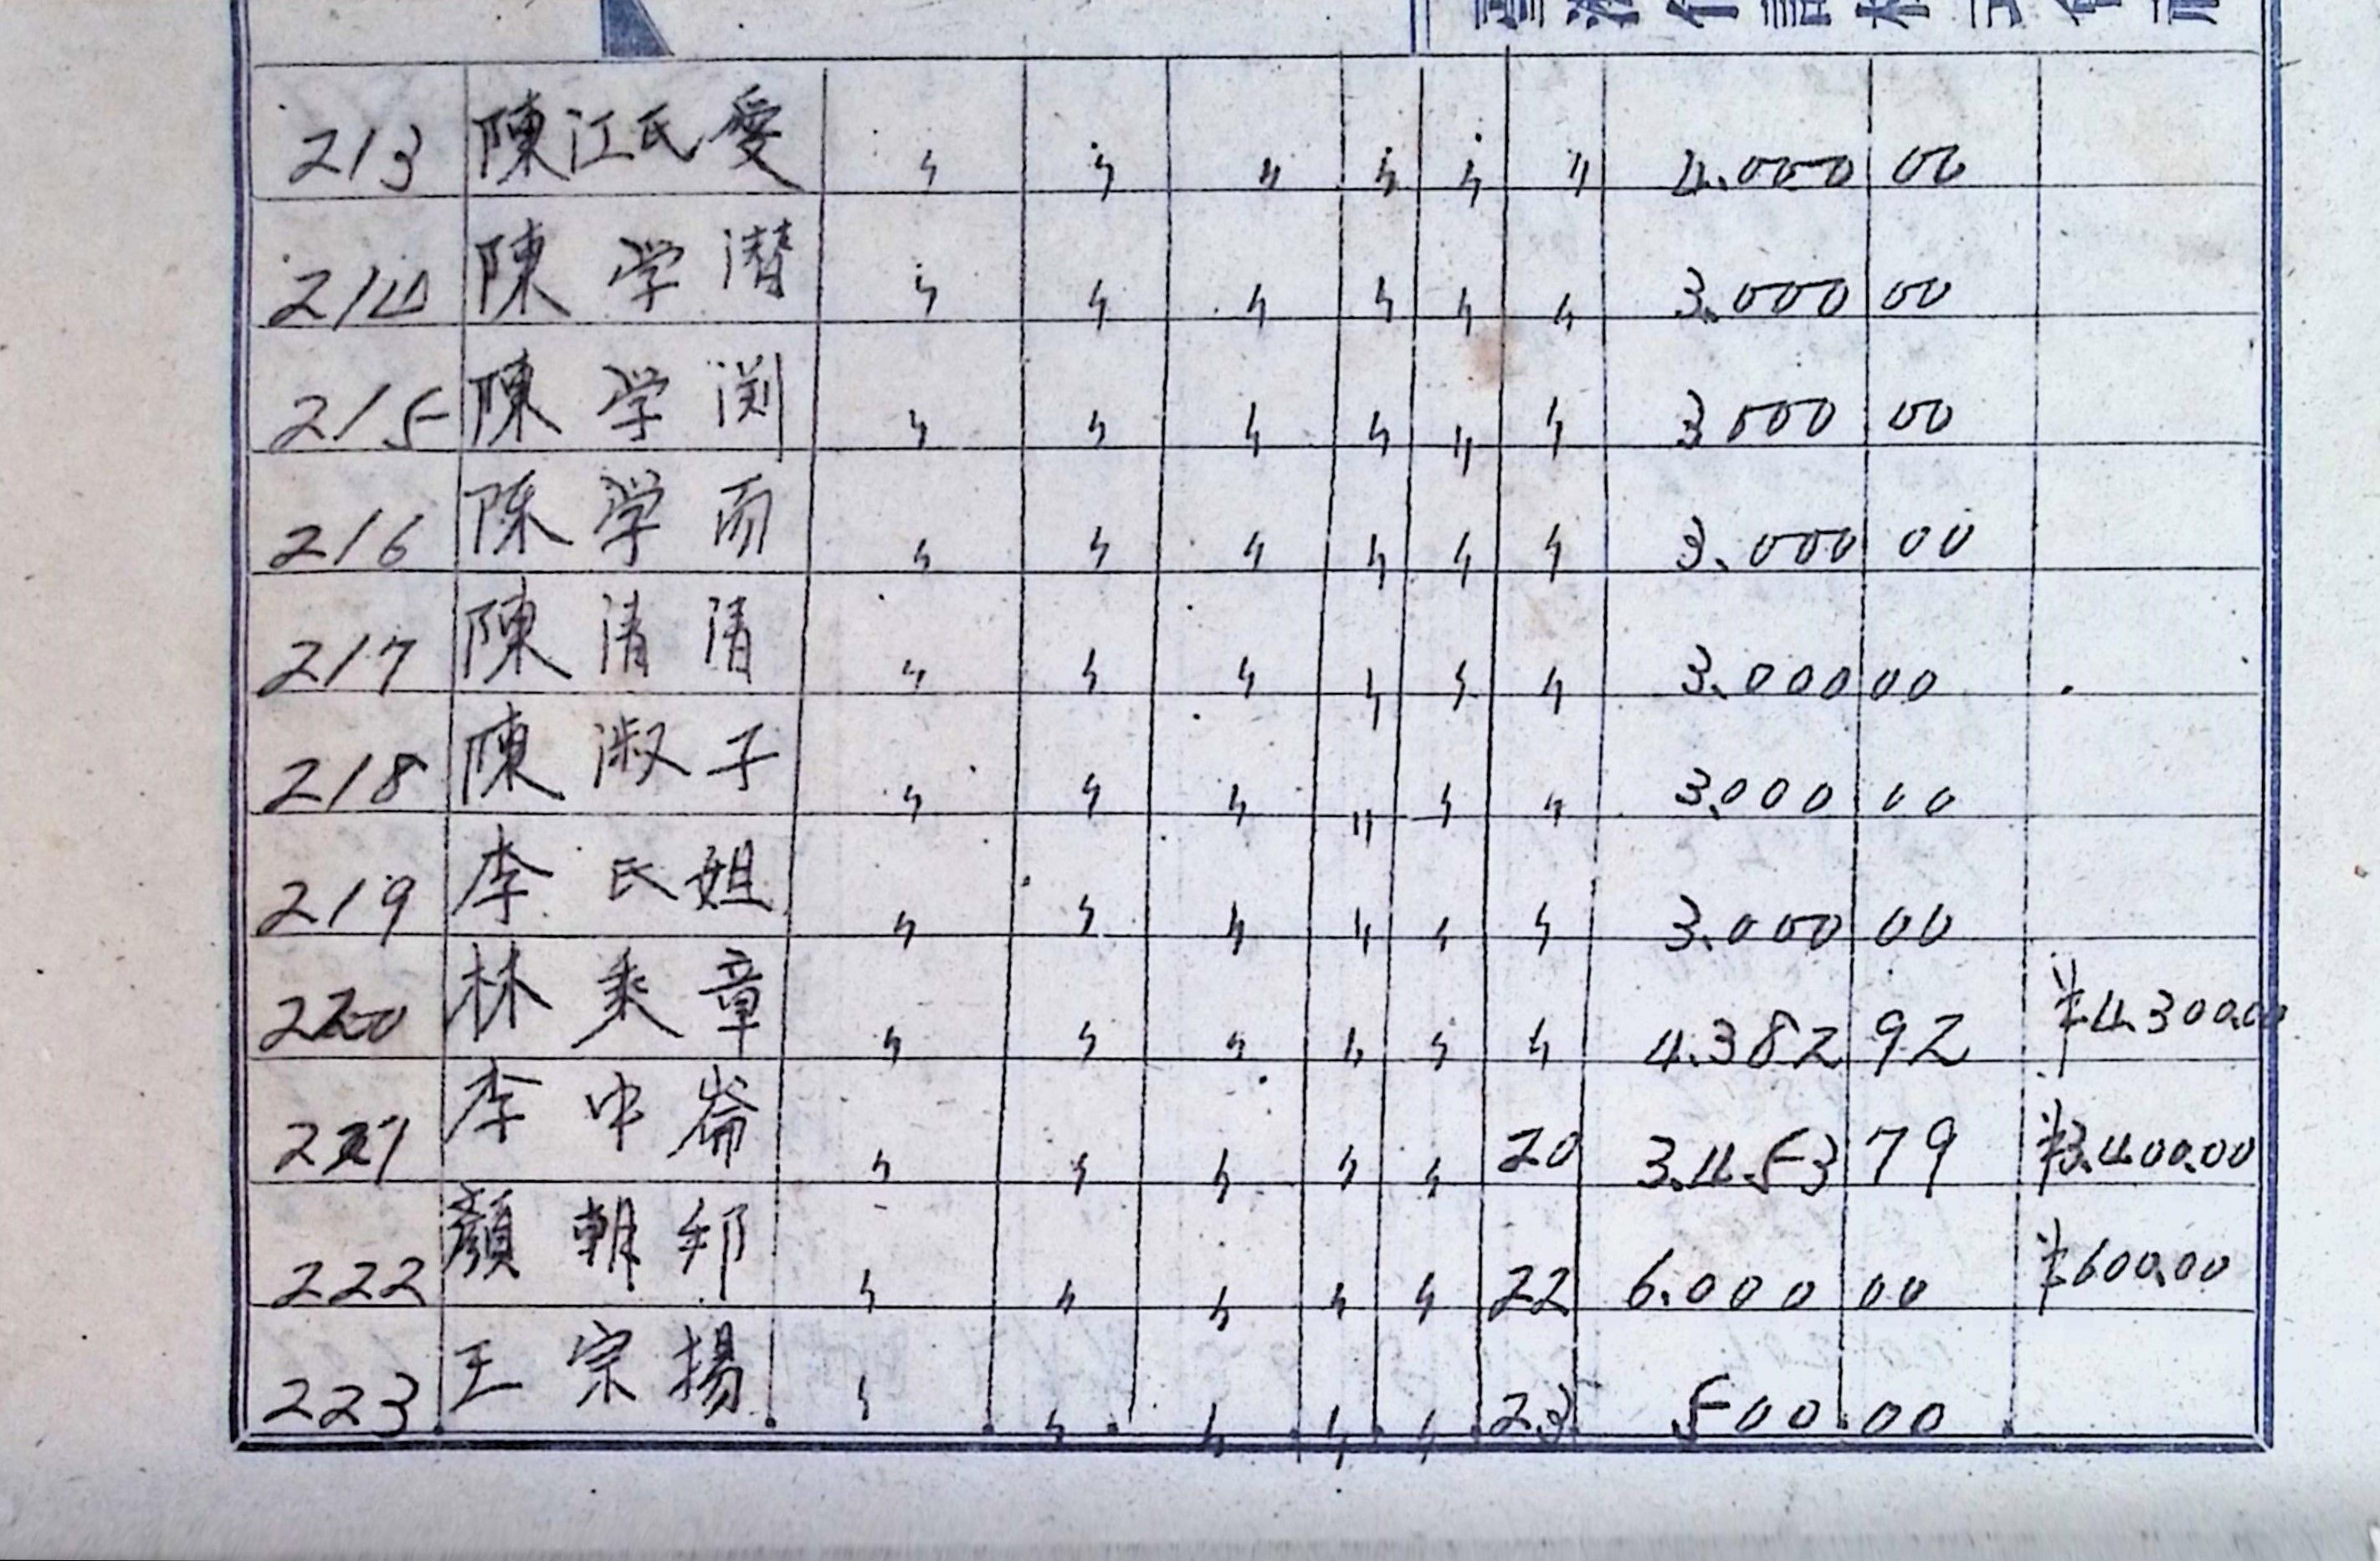 213 陳江氏愛 〃 〃 〃 〃 〃 〃 4.000 00
214 陳学潜 〃 〃 〃 〃 〃 〃 3.000 00
215 陳学渕 〃 〃 〃 〃 〃 〃 3 000 00
216 陳学而 〃 〃 〃 〃 〃 〃 3.000 00
217 陳清清 〃 〃 〃 〃 〃 〃 3.000 00
218 陳淑子 〃 〃 〃 〃 〃 〃 3.000 00
219 李氏姐 〃 〃 〃 〃 〃 〃 3.000 00
220 林乘章 〃 〃 〃 〃 〃 〃 4.382 92 ¥4.300.00
221 李中崙 〃 〃 〃 〃 〃 20 3.453 79 ¥3.400.00
222 顏朝邦 〃 〃 〃 〃 〃 22 6.000 00 ¥600.00
223 王宗揚 〃 〃 〃 〃 〃 23 500 00